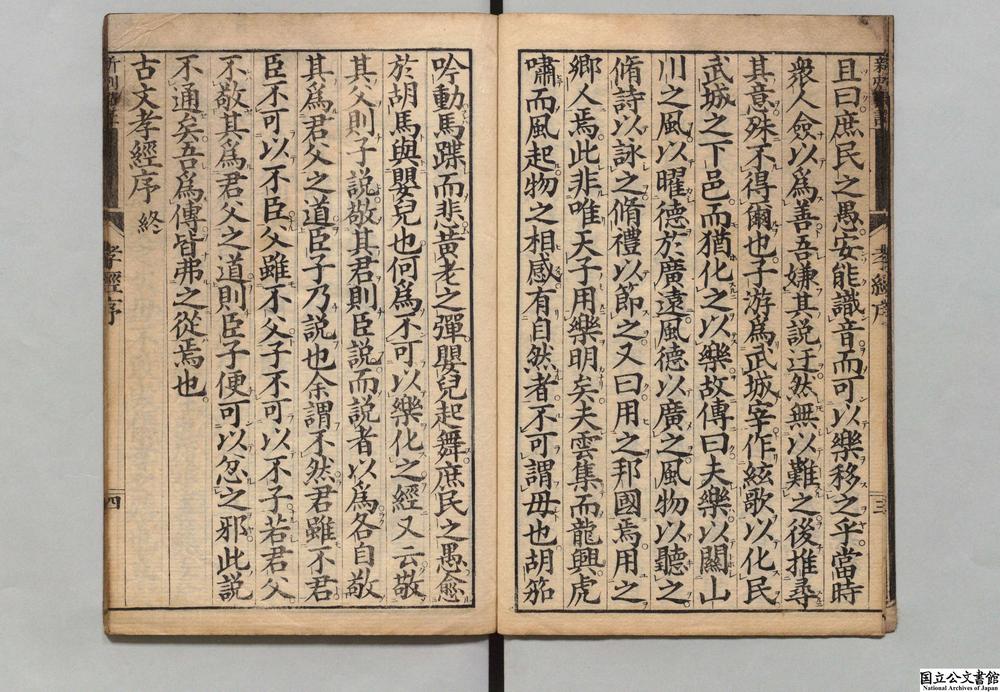 且曰庶民之愚安能識音而可以樂移之乎當時
衆人僉以爲善吾嫌其說迂然無以難之後推尋
其意殊不得爾也子游爲武城宰作絃歌以化民
武城之下邑而猶化之以樂故傳曰夫樂以關山
川之風以曜德於廣遠風德以廣之風物以聽之
脩詩以詠之脩禮以節之又曰用之邦國焉用之
鄉人焉此非唯天子用樂明矣夫雲集而龍興虎
嘯而風起物之相感有自然者不可謂毋也胡笳
孝經序
三
吟動馬蹀而悲黃老之彈嬰兒起舞庶民之愚愈
於胡馬與嬰兒也何爲不可以樂化之經又云敬
其父則子說敬其君則臣說而說者以爲各自敬
其爲君父之道臣子乃說也余謂不然君雖不君
臣不可以不臣父雖不父子不可以不子若君父
不敬其爲君父之道則臣子便可以忿之邪此說
不通矣吾爲傳皆弗之從焉也
古文孝經序 終
孝經序
四
国立公文書館
National Archives of Japan